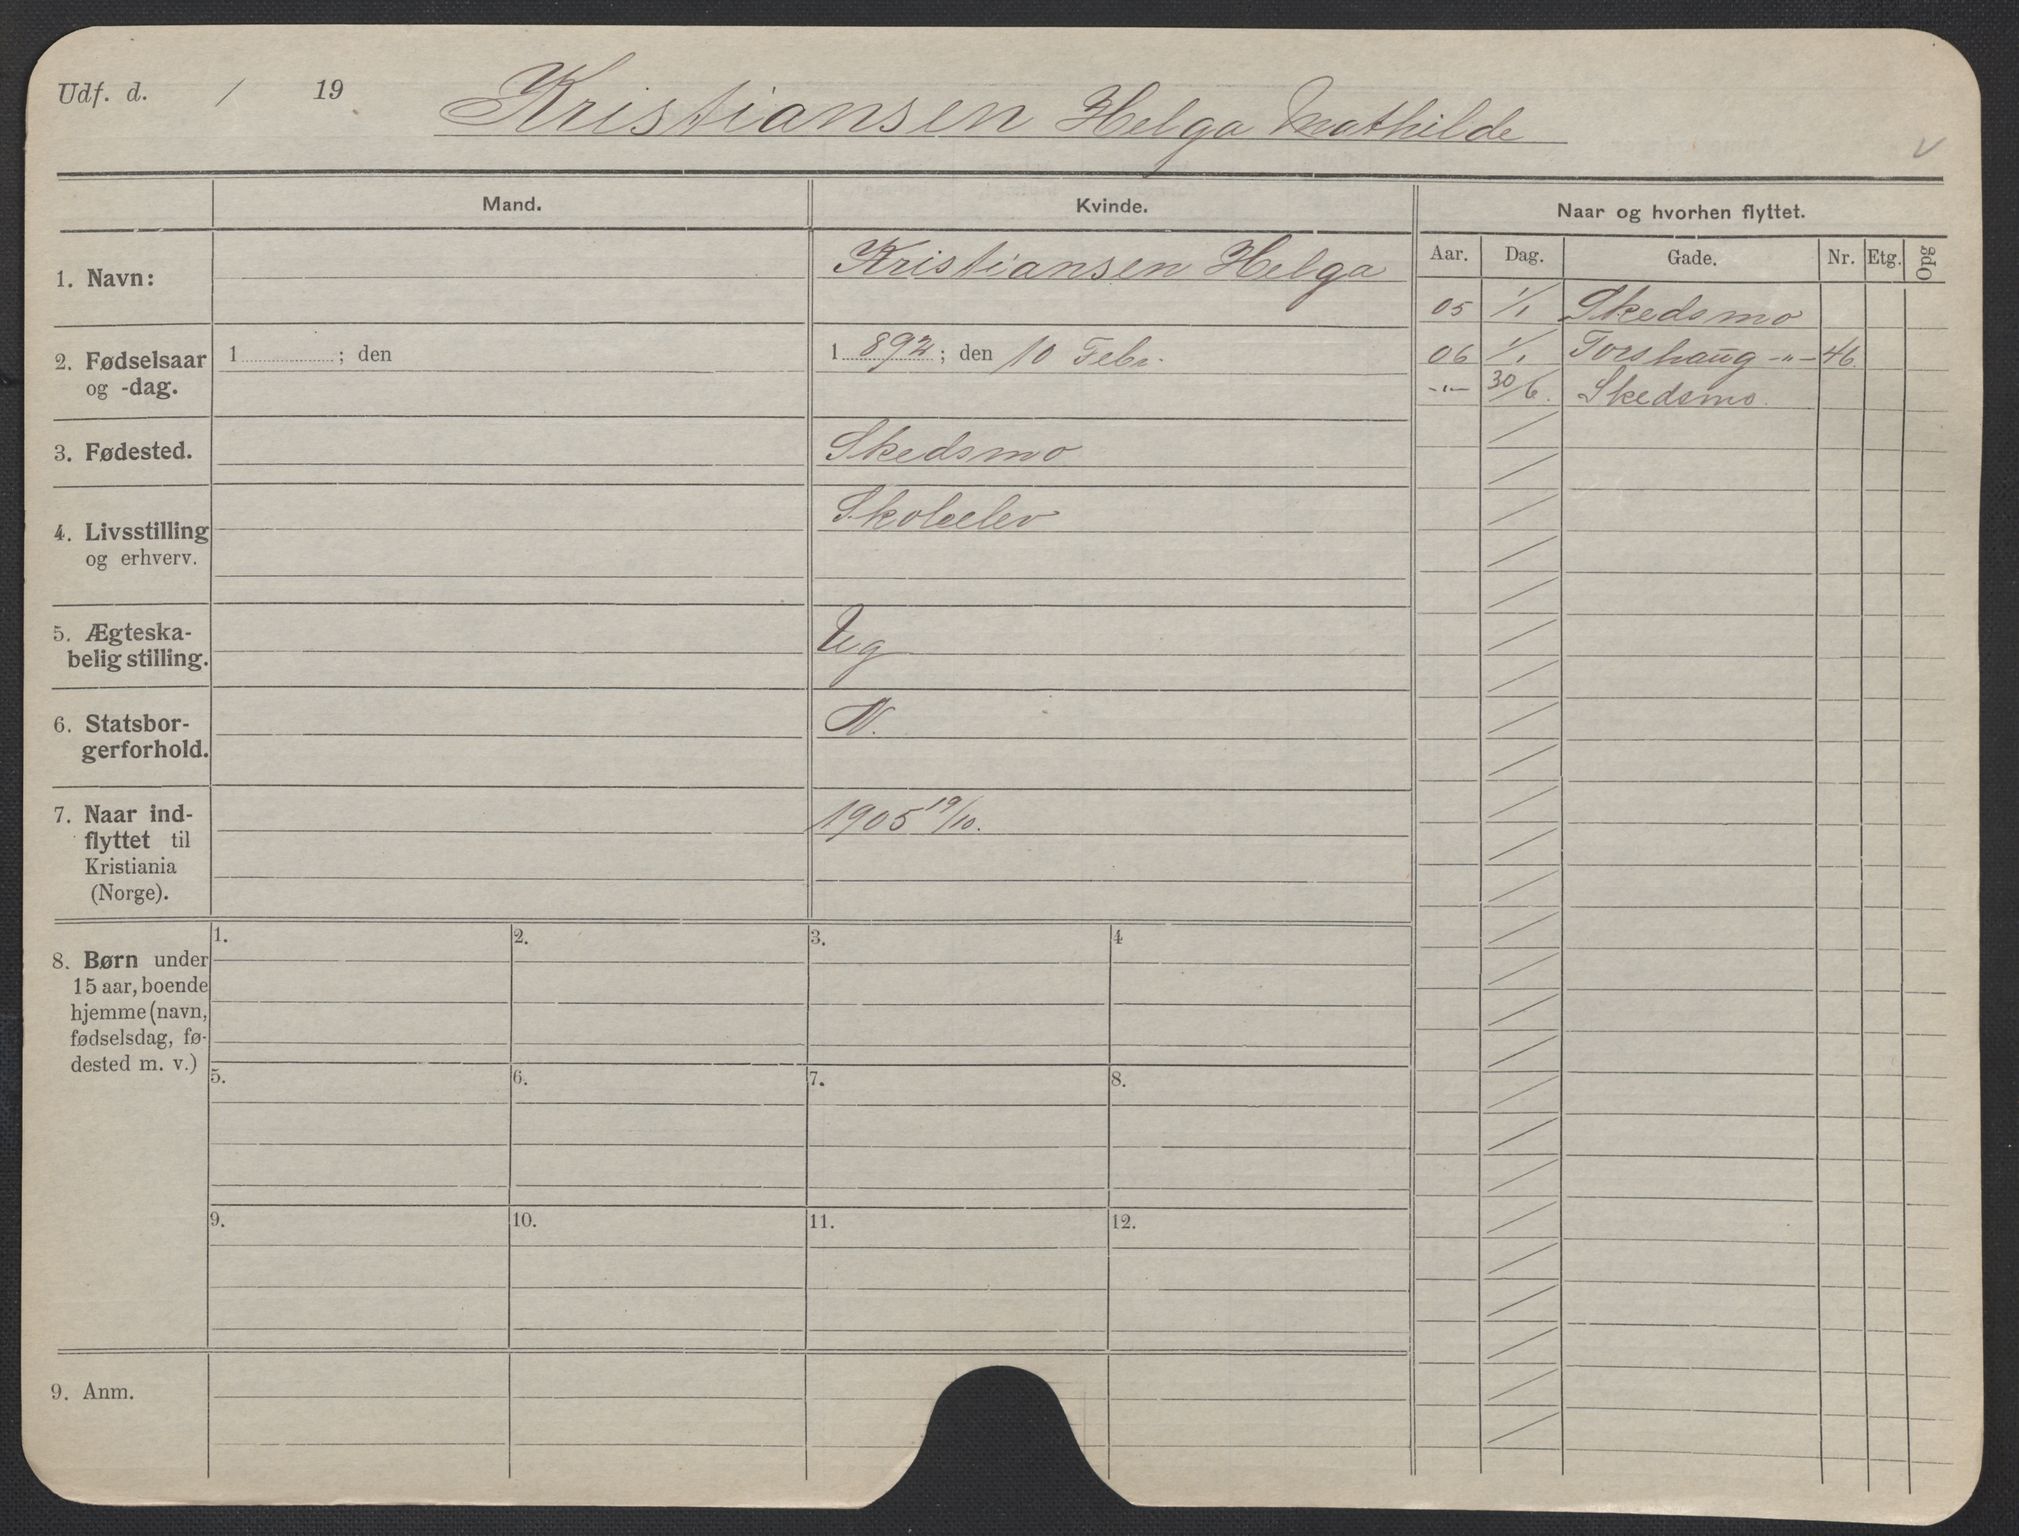 Udf. d. / 19
Kristiansen Helga Mathilde
Mand.
Kvinde.
Naar og hvorhen flyttet.
Aar. Dag. Gade. Nr. Etg. Opg
1. Navn:
Kristiansen Helga
05 1/1 Skedsmo
06 1/1 Torshaug -"- 46.
-"- 30/6. Skedsmo.
2. Fødselsaar
og -dag.
1 ; den
1 892 ; den 10 Febr.
3. Fødested.
Skedsmo
4. Livsstilling
og erhverv.
Skoleelev
5. Ægteska-
belig stilling.
Ug
6. Statsbor-
gerforhold.
N.
7. Naar ind-
flyttet til
Kristiania
(Norge).
1905 19/10.
8. Børn under
15 aar, boende
hjemme (navn,
fødselsdag, fø-
dested m. v.)
1. 2. 3. 4
5. 6. 7. 8.
9. 10. 11. 12.
9. Anm.